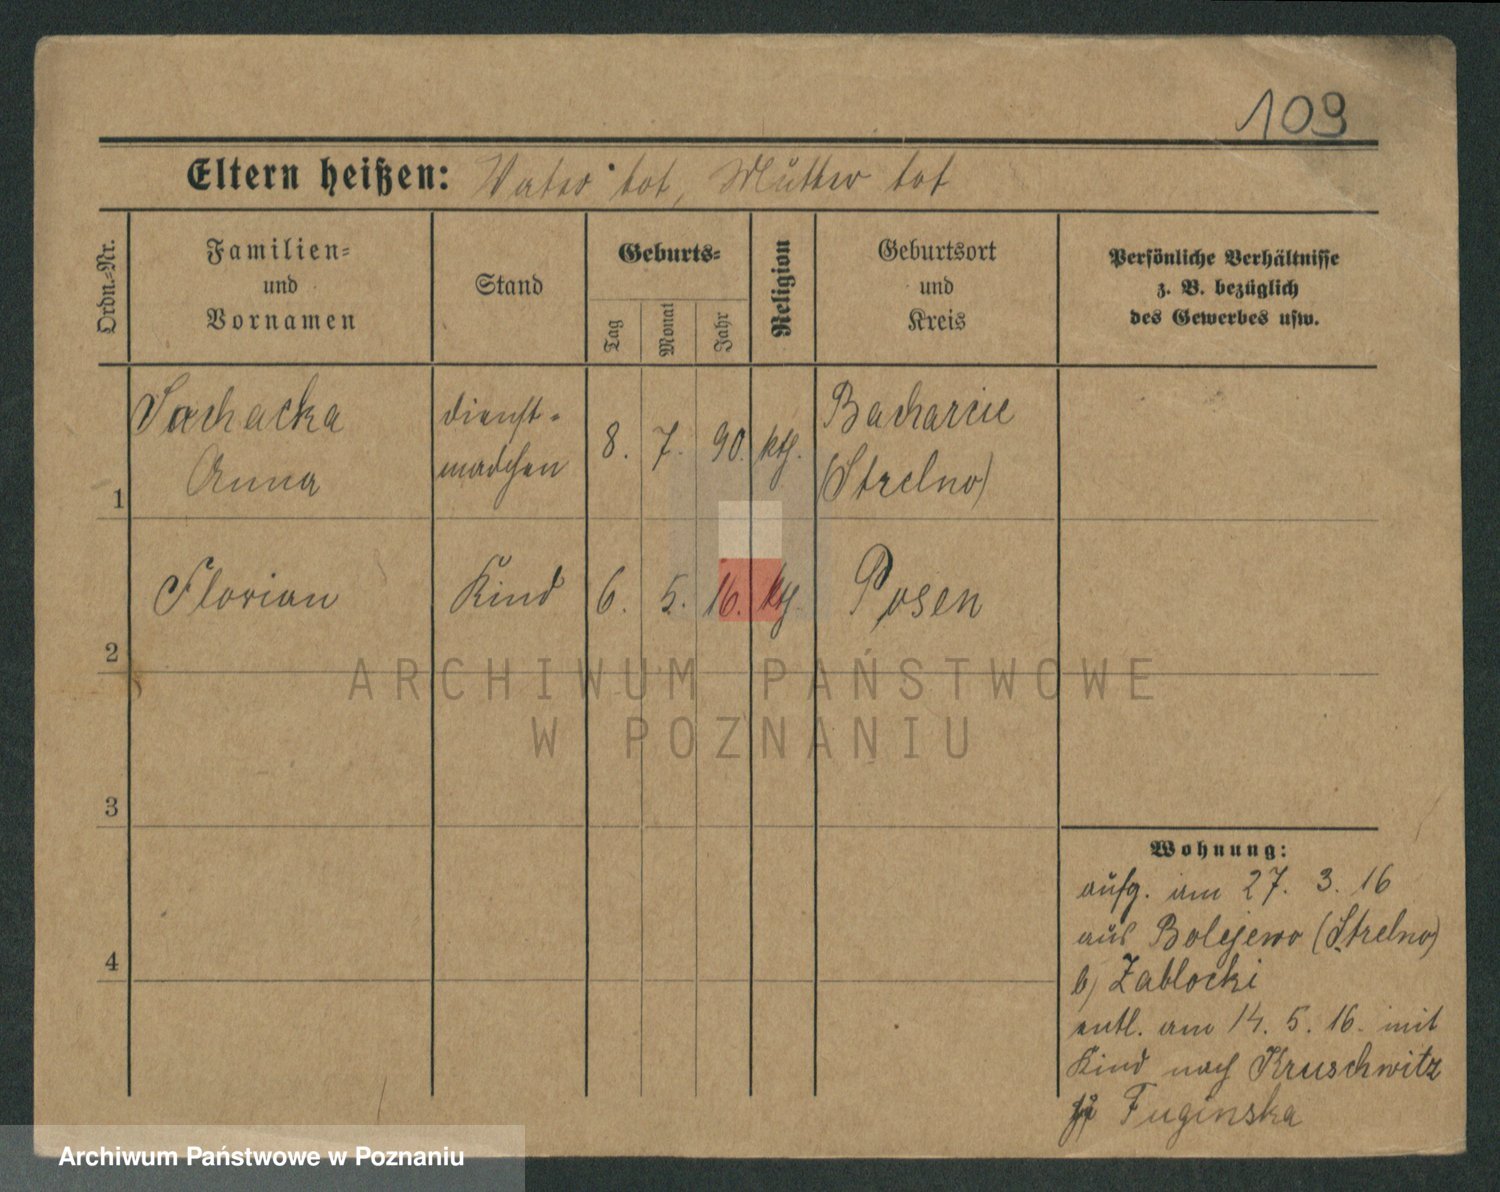 109
Eltern heißen: Vater tot, Mutter tot
Ordn.-Nr.
Familien-
und
Vornamen
Stand
Geburts-
Tag
Monat
Jahr
Religion
Geburtsort
und
Kreis
Persönliche Verhältnisse
z. B. bezüglich
des Gewerbes usw.
1
Sachacka
Anna
Dienst-
mädchen
8. 7. 90. kth.
Bacharcie
(Strelno)
2
Florian
Kind
6. 5. 16. kth.
Posen
3
4
Wohnung:
aufg. am 27. 3. 16
aus Bolejewo (Strelno)
b/ Zablocki
entl. am 14. 5. 16. mit
Kind nach Kruschwitz
Fuginska
ARCHIWUM PAŃSTWOWE
W POZNANIU
Archiwum Państwowe w Poznaniu